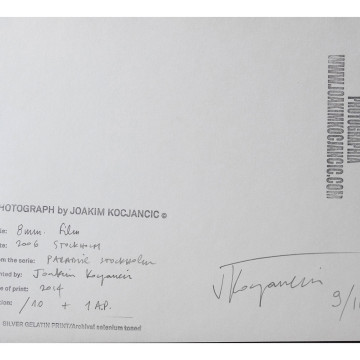 PHOTOGRAPHIA
WWW.JOAKIMKOCJANCIC.COM
PHOTOGRAPH by JOAKIM KOCJANCIC ©
le: 8mm. Film
te: 2006 STOCKHOLM
om the serie: PARADISE STOCKHOLM
nted by: Joakim Kocjancic
e of print: 2014
tion: /10 + 1 A.P.
SILVER GELATIN PRINT/Archival selenium toned
J Kocjancic
9/10